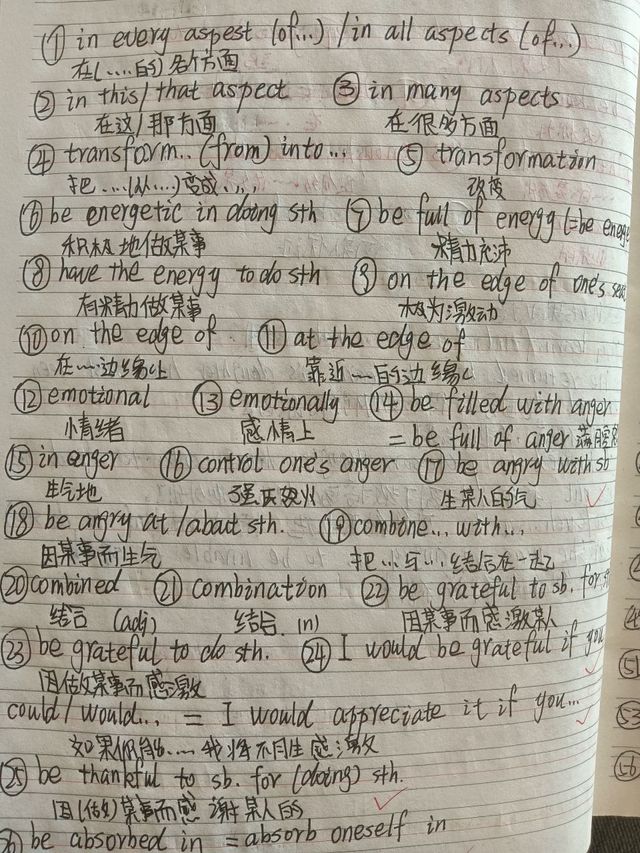 ① in every aspest (of...) / in all aspects (of...)
在(……的)各个方面
② in this/that aspect ③ in many aspects
在这/那方面 在很多方面
④ transform... (from) into... ⑤ transformation
把……(从……)变成…… 改变
⑥ be energetic in doing sth ⑦ be full of energy (=be energe
积极地做某事 精力充沛
⑧ have the energy to do sth ⑨ on the edge of one's seat
有精力做某事 极为激动
⑩ on the edge of ⑪ at the edge of
在…边缘上 靠近…的边缘
⑫ emotional ⑬ emotionally ⑭ be filled with anger
情绪 感情上 = be full of anger 满腔
⑮ in anger ⑯ control one's anger ⑰ be angry with sb
生气地 强压怒火 生某人的气
⑱ be angry at/about sth. ⑲ combine... with...
因某事而生气 把…与…结合在一起
⑳ combined ㉑ combination ㉒ be grateful to sb. for
结合 (adj) 结合 (n) 因某事而感激某人
㉓ be grateful to do sth. ㉔ I would be grateful if you
因做某事而感激
could/would... = I would appreciate it if you...
如果你能……我将不同生感激
㉕ be thankful to sb. for (doing) sth.
因(做)某事而感谢某人的
be absorbed in = absorb oneself in
㊿